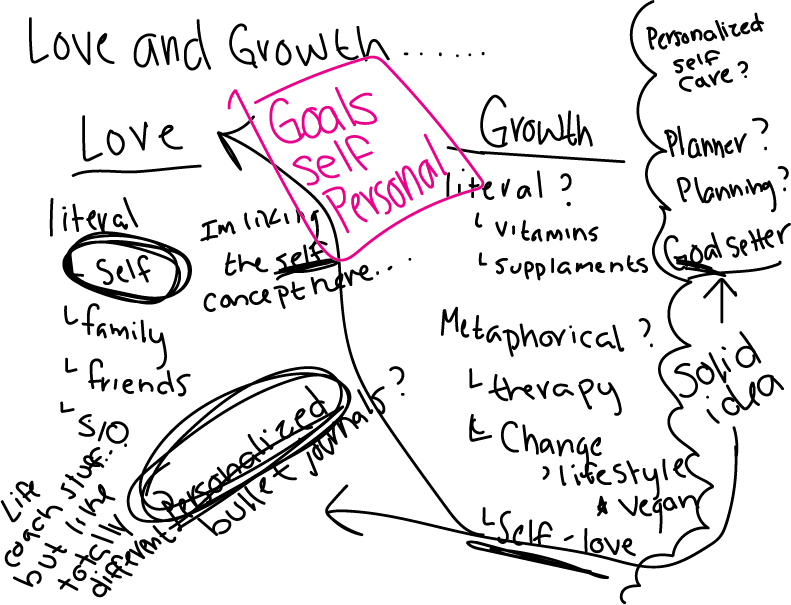 Love and Growth......
Love
literal
Self
family
friends
S/O
Life
coach stuff..
but like
totally
different
Im liking
the self
concept here...
Goals
self
Personal
Personalized
bullet journals?
Growth
literal?
vitamins
supplaments
Metaphorical?
therapy
Change
lifestyle
vegan
Self-love
Personalized
self
care?
Planner?
Planning?
Goalsetter
Solid
idea